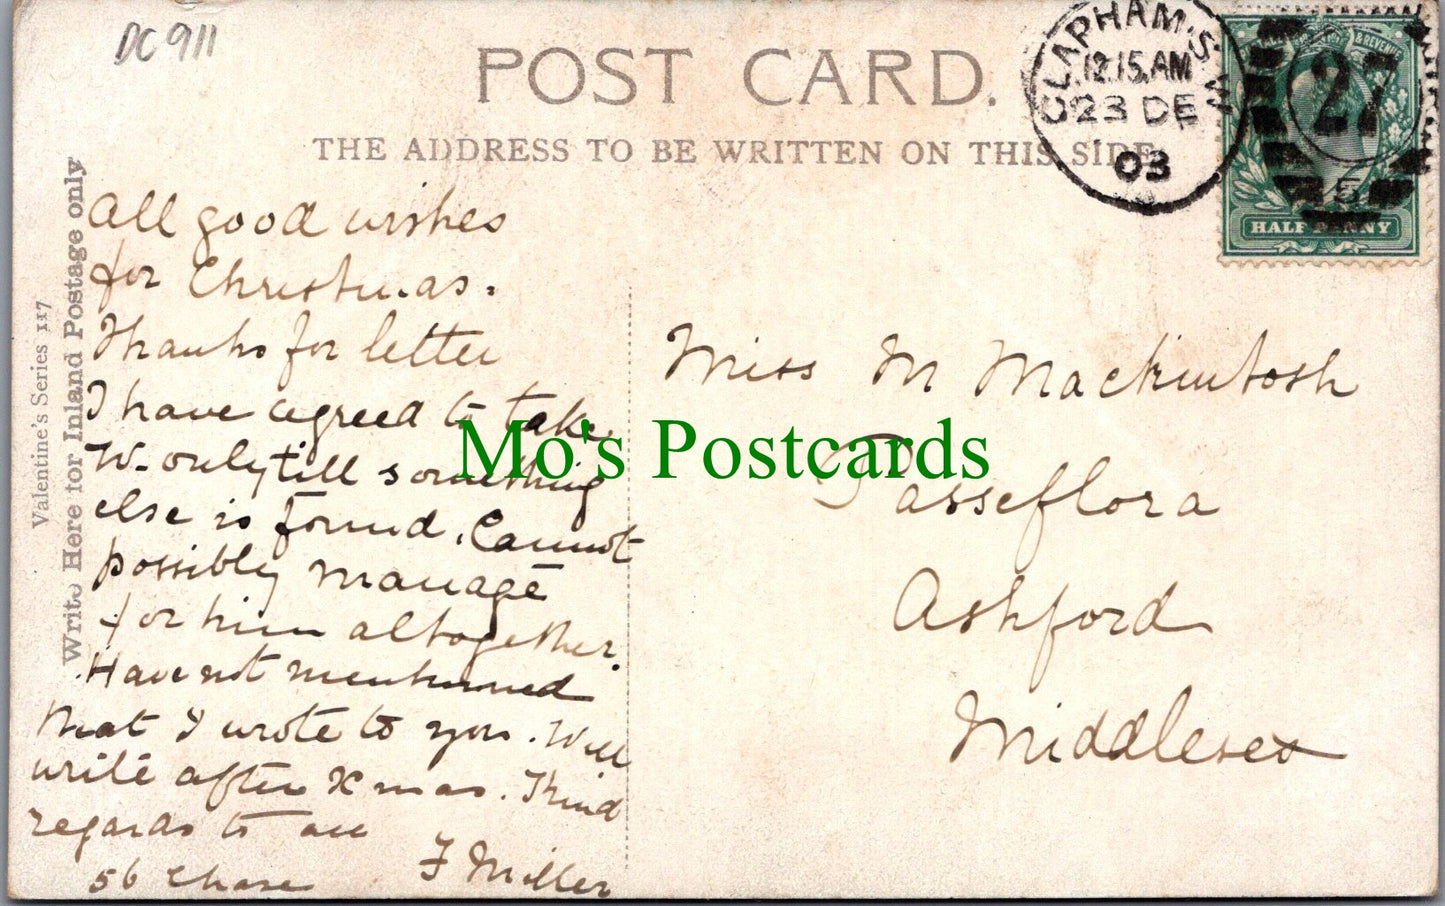 DC 911
POST CARD.
THE ADDRESS TO BE WRITTEN ON THIS SIDE
CLAPHAM.S.W
12.15.AM
23 DE
03
27
& REVENUE
HALFPENNY
Valentine's Series 117
Write Here for Inland Postage only
All good wishes
for Christmas.
Thanks for letter
I have agreed to take
W. only till something
else is found. Cannot
possibly manage
for him altogether.
Have not mentioned
that I wrote to you. Will
write after Xmas. Kind
regards to all
56 Chase F Miller
Miss M Mackintosh
Passeflora
Ashford
Middlesex
Mo's Postcards